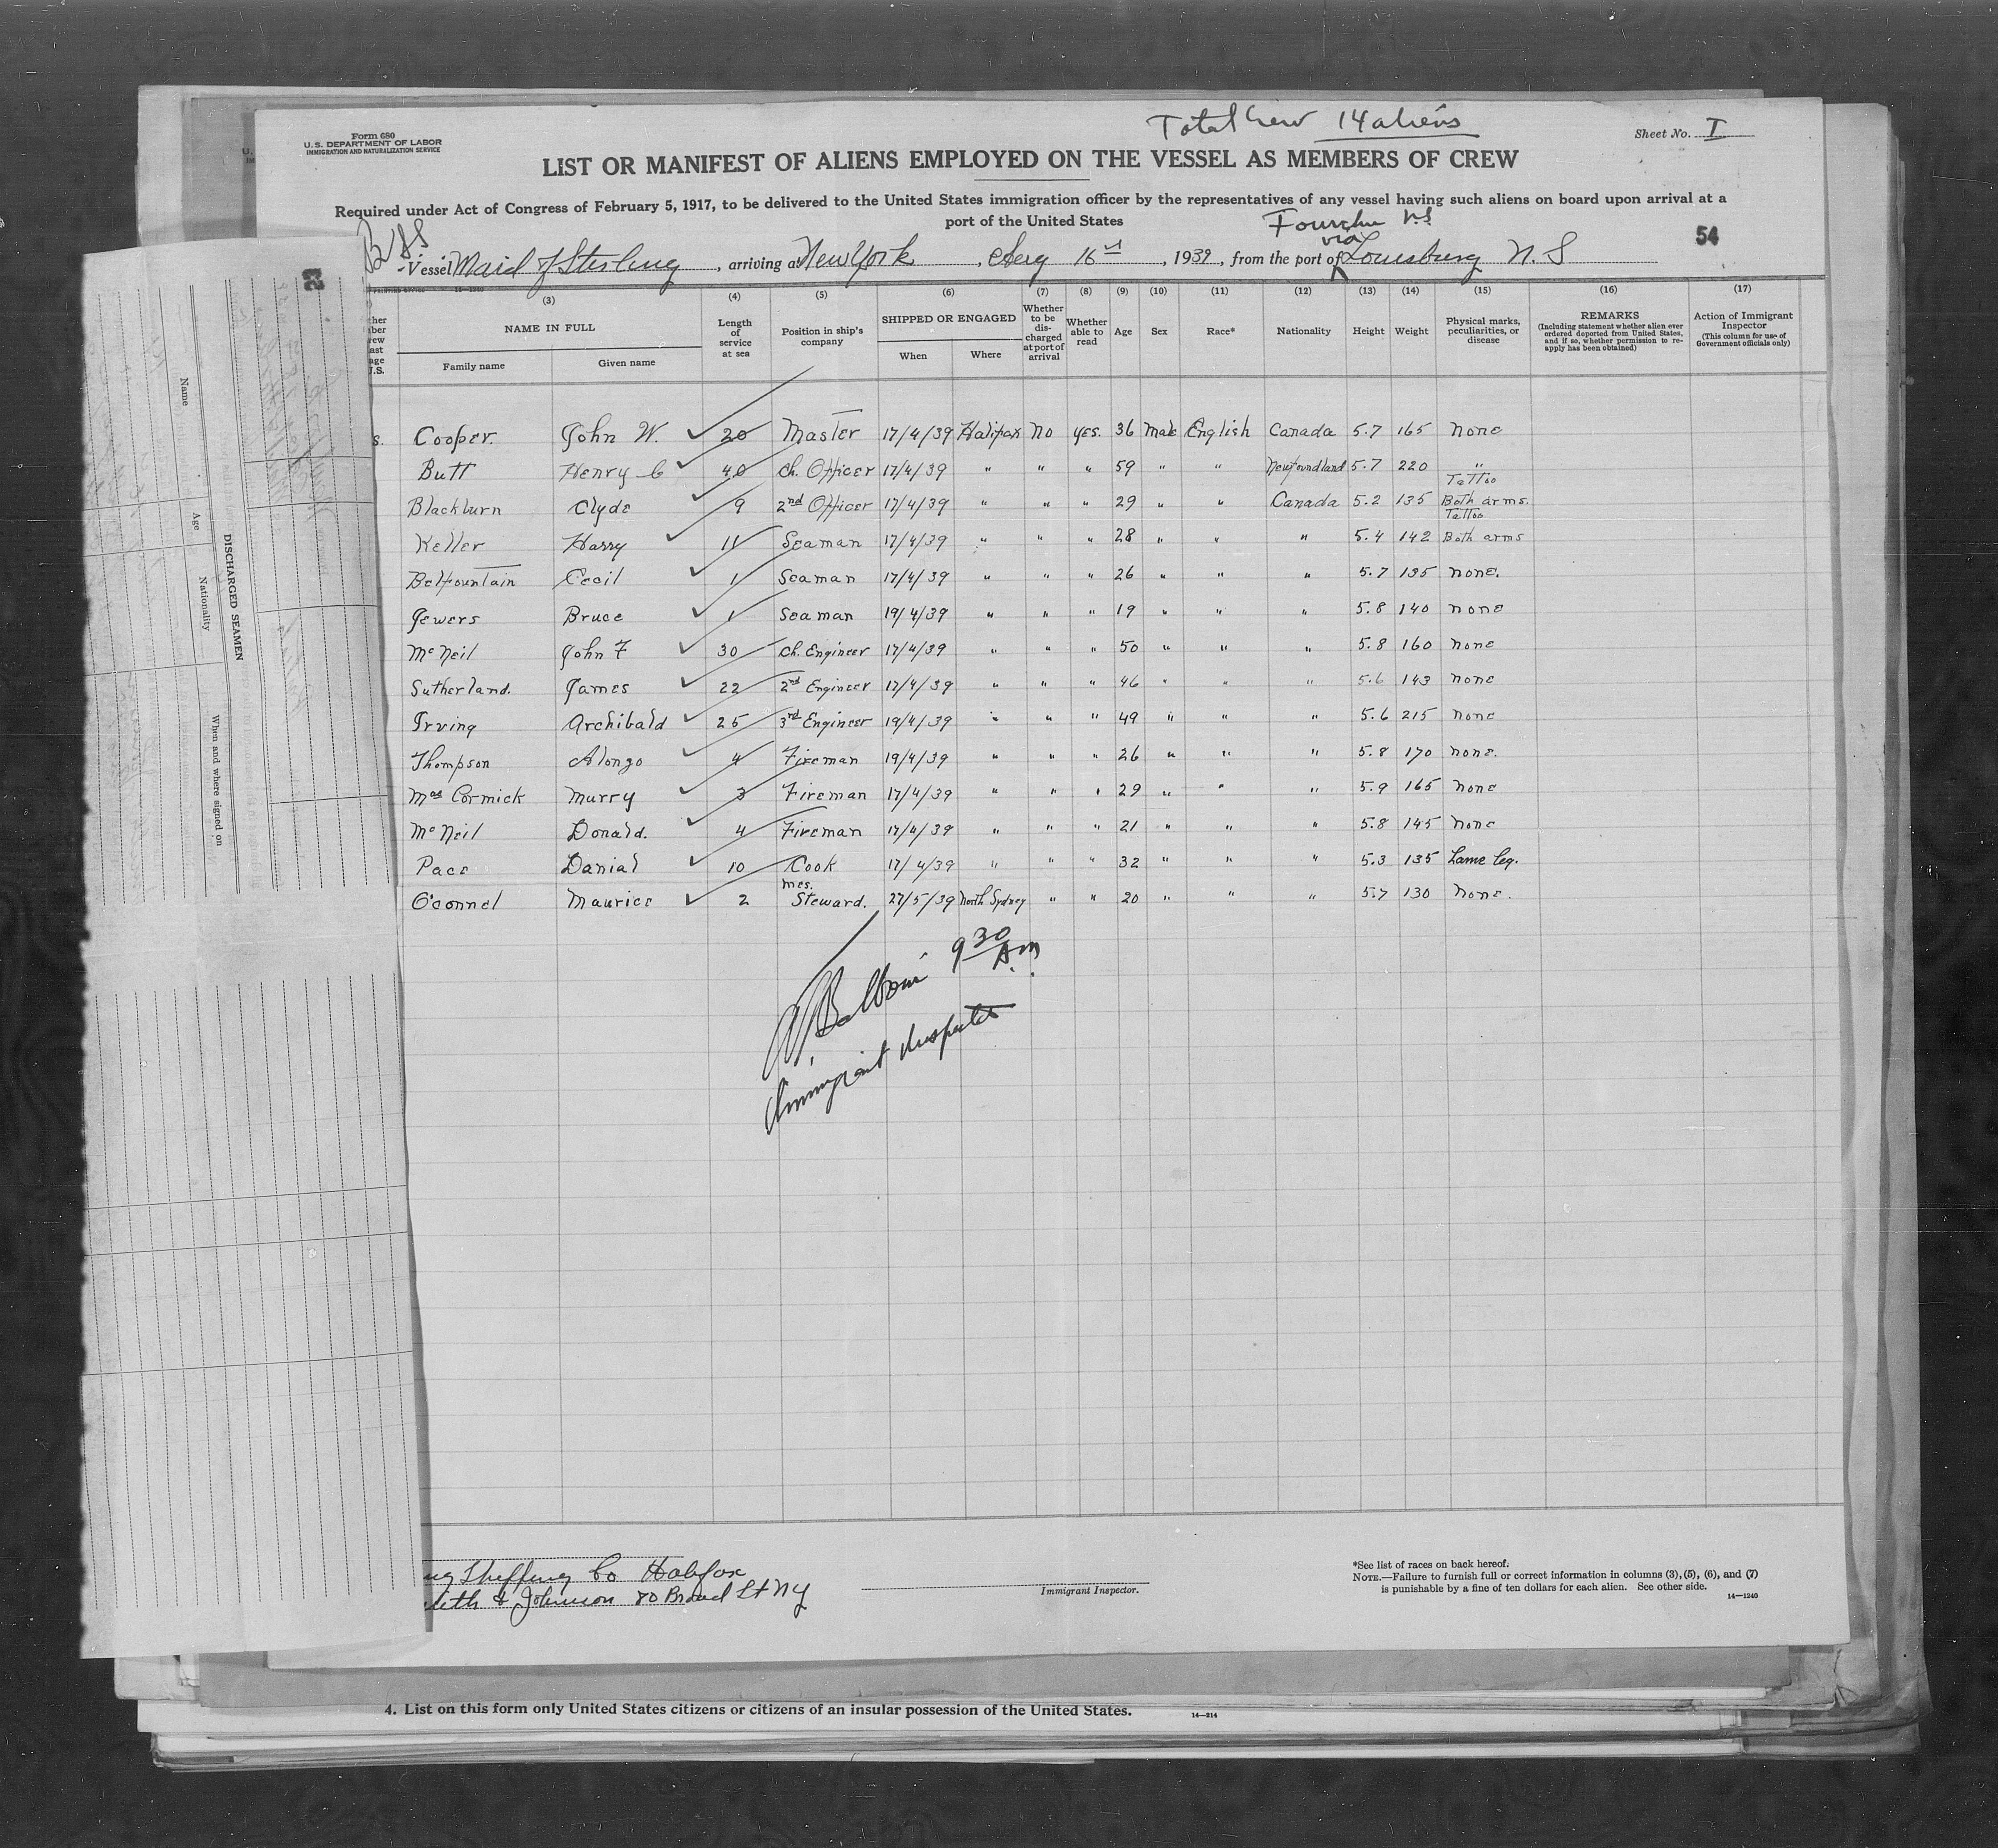 Total Crew 14 aliens
Form 680
U.S. DEPARTMENT OF LABOR
IMMIGRATION AND NATURALIZATION SERVICE
Sheet No. I
LIST OR MANIFEST OF ALIENS EMPLOYED ON THE VESSEL AS MEMBERS OF CREW
Required under Act of Congress of February 5, 1917, to be delivered to the United States immigration officer by the representatives of any vessel having such aliens on board upon arrival at a
port of the United States
Fourchu N.S
via
54
Vessel Maid of Sterling, arriving at New York, Aug 16th, 1939, from the port of Louisburg N.S
(3) (4) (5) (6) (7) (8) (9) (10) (11) (12) (13) (14) (15) (16) (17)
NAME IN FULL
Family name
Given name
Length of service at sea
Position in ship's company
SHIPPED OR ENGAGED
When
Where
Whether to be discharged at port of arrival
Whether able to read
Age
Sex
Race*
Nationality
Height
Weight
Physical marks, peculiarities, or disease
REMARKS
(Including statement whether alien ever ordered deported from United States, and if so, whether permission to reapply has been obtained)
Action of Immigrant Inspector
(This column for use of Government officials only)
Cooper. John W. 20 Master 17/4/39 Halifax No yes. 36 Male English Canada 5.7 165 None
Butt Henry C 40 Ch. Officer 17/4/39 " " " 59 " " Newfoundland 5.7 220 "
Blackburn Clyde 9 2nd Officer 17/4/39 " " " 29 " " Canada 5.2 135 Tattoo Both arms.
Keller Harry 11 Seaman 17/4/39 " " " 28 " " " 5.4 142 Tattoo Both arms
Belfountain Cecil 1 Seaman 17/4/39 " " " 26 " " " 5.7 135 None.
Jewers Bruce 1 Seaman 19/4/39 " " " 19 " " " 5.8 140 None
McNeil John F 30 Ch. Engineer 17/4/39 " " " 50 " " " 5.8 160 None
Sutherland. James 22 2nd Engineer 17/4/39 " " " 46 " " " 5.6 143 None
Irving Archibald 25 3rd Engineer 19/4/39 " " " 49 " " " 5.6 215 None
Thompson Alonzo 4 Fireman 19/4/39 " " " 26 " " " 5.8 170 None.
Mac Cormick Murry 3 Fireman 17/4/39 " " " 29 " " " 5.9 165 None
McNeil Donald. 4 Fireman 17/4/39 " " " 21 " " " 5.8 145 None
Pace Danial 10 Cook 17/4/39 " " " 32 " " " 5.3 135 Lame leg.
O'connel Maurice 2 Mes. Steward. 27/5/39 North Sydney " " 20 " " " 5.7 130 None.
9 30 A.M.
Immigrant Inspector
Shipping Co Halifax
& Johnson 80 Broad St NY
Immigrant Inspector.
*See list of races on back hereof.
NOTE.—Failure to furnish full or correct information in columns (3), (5), (6), and (7)
is punishable by a fine of ten dollars for each alien. See other side.
14—1240
4. List on this form only United States citizens or citizens of an insular possession of the United States.
14—214
DISCHARGED SEAMEN
Name
Age
Nationality
When and where signed on